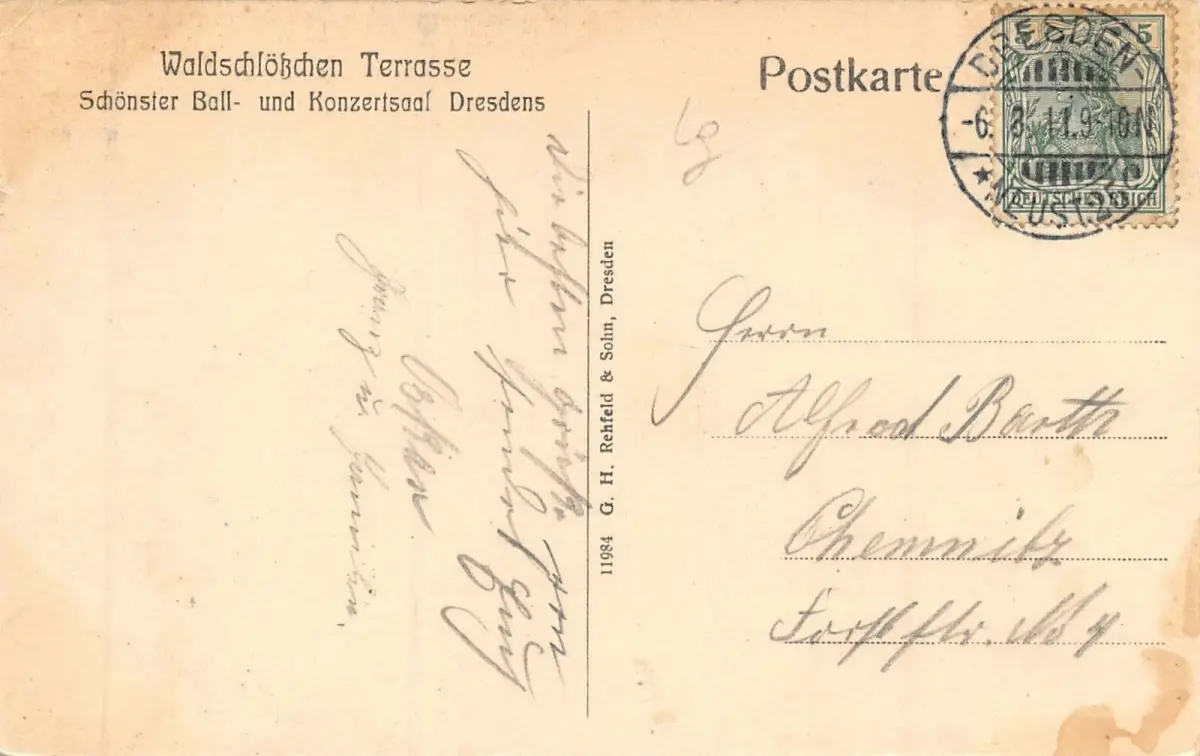 Waldschlößchen Terrasse
Schönster Ball- und Konzertsaal Dresdens
Postkarte
5
DRESDEN-
-6. 8. 11. 9-10 N
* NEUST.
DEUTSCHES REICH
Die besten Grüße von
hier sendet
Oskar
u. Familie.
11984 G. H. Rehfeld & Sohn, Dresden
Herrn
Alfred Barth
Chemnitz
Forststr. No